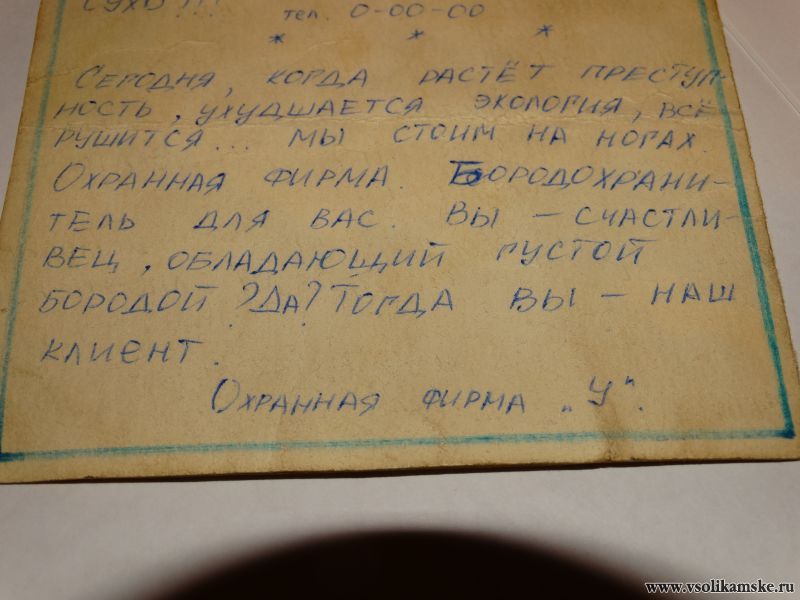 СУХО!!!
тел. 0-00-00
* * *
Сегодня, когда растёт преступ-
ность, ухудшается экология, всё
рушится... мы стоим на ногах.
Охранная фирма. Бородохрани-
тель для вас. Вы – счастли-
вец, обладающий густой
бородой? Да? Тогда вы – наш
клиент.
Охранная фирма „У".
www.vsolikamske.ru